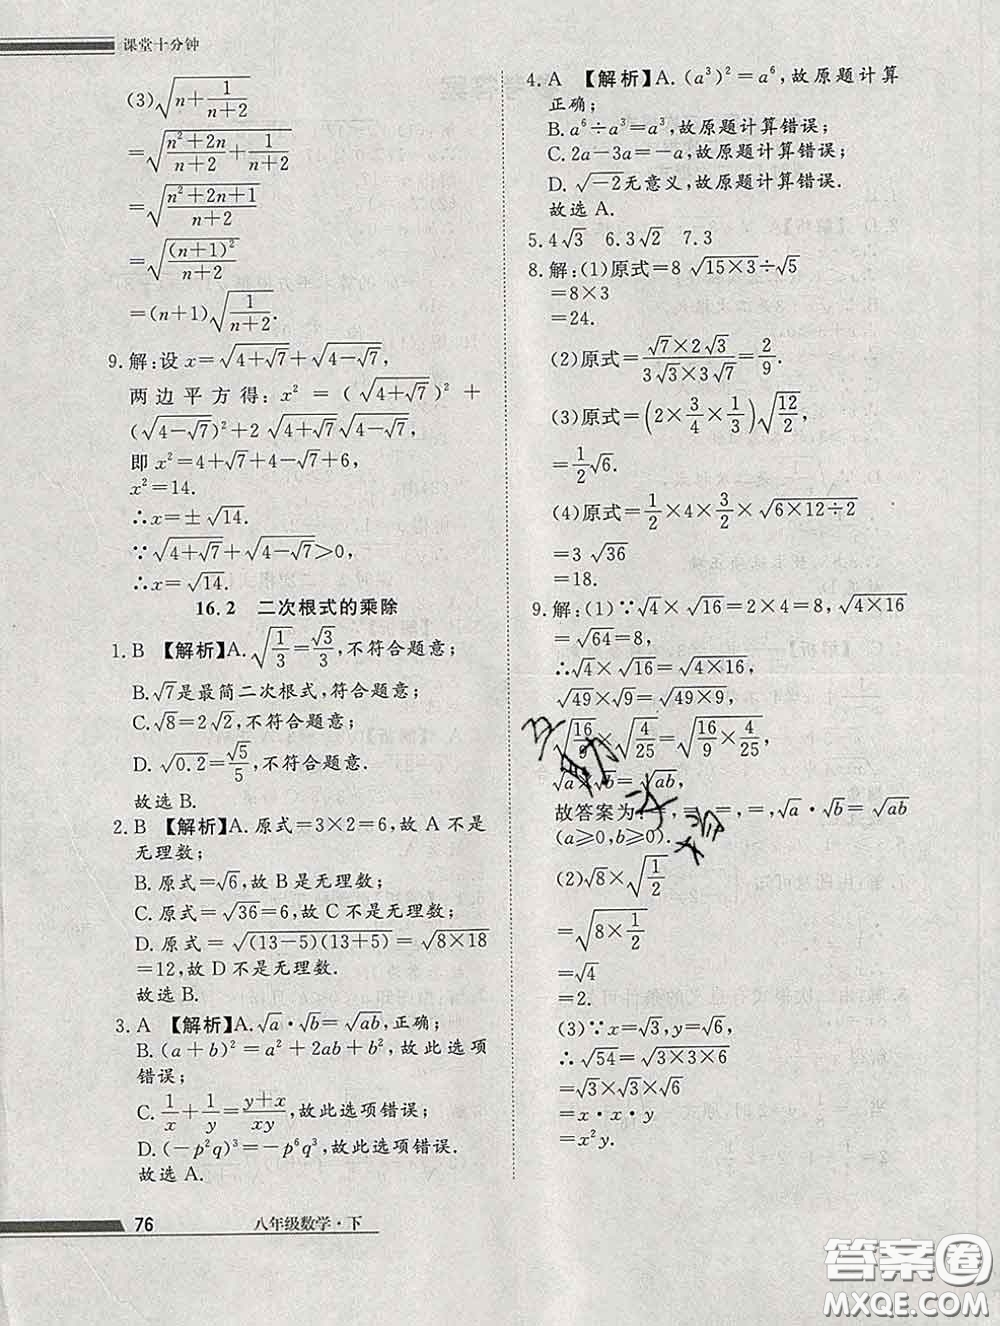 课堂十分钟
(3)√(n+1/(n+2))
=√((n²+2n)/(n+2)+1/(n+2))
=√((n²+2n+1)/(n+2))
=√((n+1)²/(n+2))
=(n+1)√(1/(n+2)).
9.解:设 x=√(4+√7)+√(4-√7),
两边平方得:x²=(√(4+√7))²+
(√(4-√7))²+2√(4+√7)√(4-√7),
即 x²=4+√7+4-√7+6,
x²=14.
∴x=±√14.
∵√(4+√7)+√(4-√7)>0,
∴x=√14.
16.2 二次根式的乘除
1.B 【解析】A.√(1/3)=√3/3,不符合题意;
B.√7是最简二次根式,符合题意;
C.√8=2√2,不符合题意;
D.√0.2=√5/5,不符合题意.
故选 B.
2.B 【解析】A.原式=3×2=6,故 A 不是
无理数;
B.原式=√6,故 B 是无理数;
C.原式=√36=6,故 C 不是无理数;
D.原式=√((13-5)(13+5))=√(8×18)
=12,故 D 不是无理数.
故选 B.
3.A 【解析】A.√a·√b=√ab,正确;
B.(a+b)²=a²+2ab+b²,故此选项
错误;
C.1/x+1/y=(y+x)/xy,故此选项错误;
D.(-p²q)³=-p⁶q³,故此选项错误.
故选 A.
4.A 【解析】A.(a³)²=a⁶,故原题计算
正确;
B.a⁶÷a³=a³,故原题计算错误;
C.2a-3a=-a,故原题计算错误;
D.√-2无意义,故原题计算错误.
故选 A.
5.4√3 6.3√2 7.3
8.解:(1)原式=8√(15×3)÷√5
=8×3
=24.
(2)原式=(√7×2√3)/(3√3×3√7)=2/9.
(3)原式=(2×3/4×1/3)√(12/2),
=1/2√6.
(4)原式=1/2×4×3/2×√(6×12÷2)
=3√36
=18.
9.解:(1)∵√4×√16=2×4=8,√(4×16)
=√64=8,
∴√4×√16=√(4×16),
√49×√9=√(49×9),
√(16/9)×√(4/25)=√(16/9×4/25),
√a×√b=√ab,
故答案为:=,=,=,=,√a·√b=√ab
(a≥0,b≥0).
(2)√8×√(1/2)
=√(8×1/2)
=√4
=2.
(3)∵x=√3,y=√6,
∴√54=√(3×3×6)
=√3×√3×√6
=x·x·y
=x²y.
76 八年级数学·下
答案圈
MXQE.COM